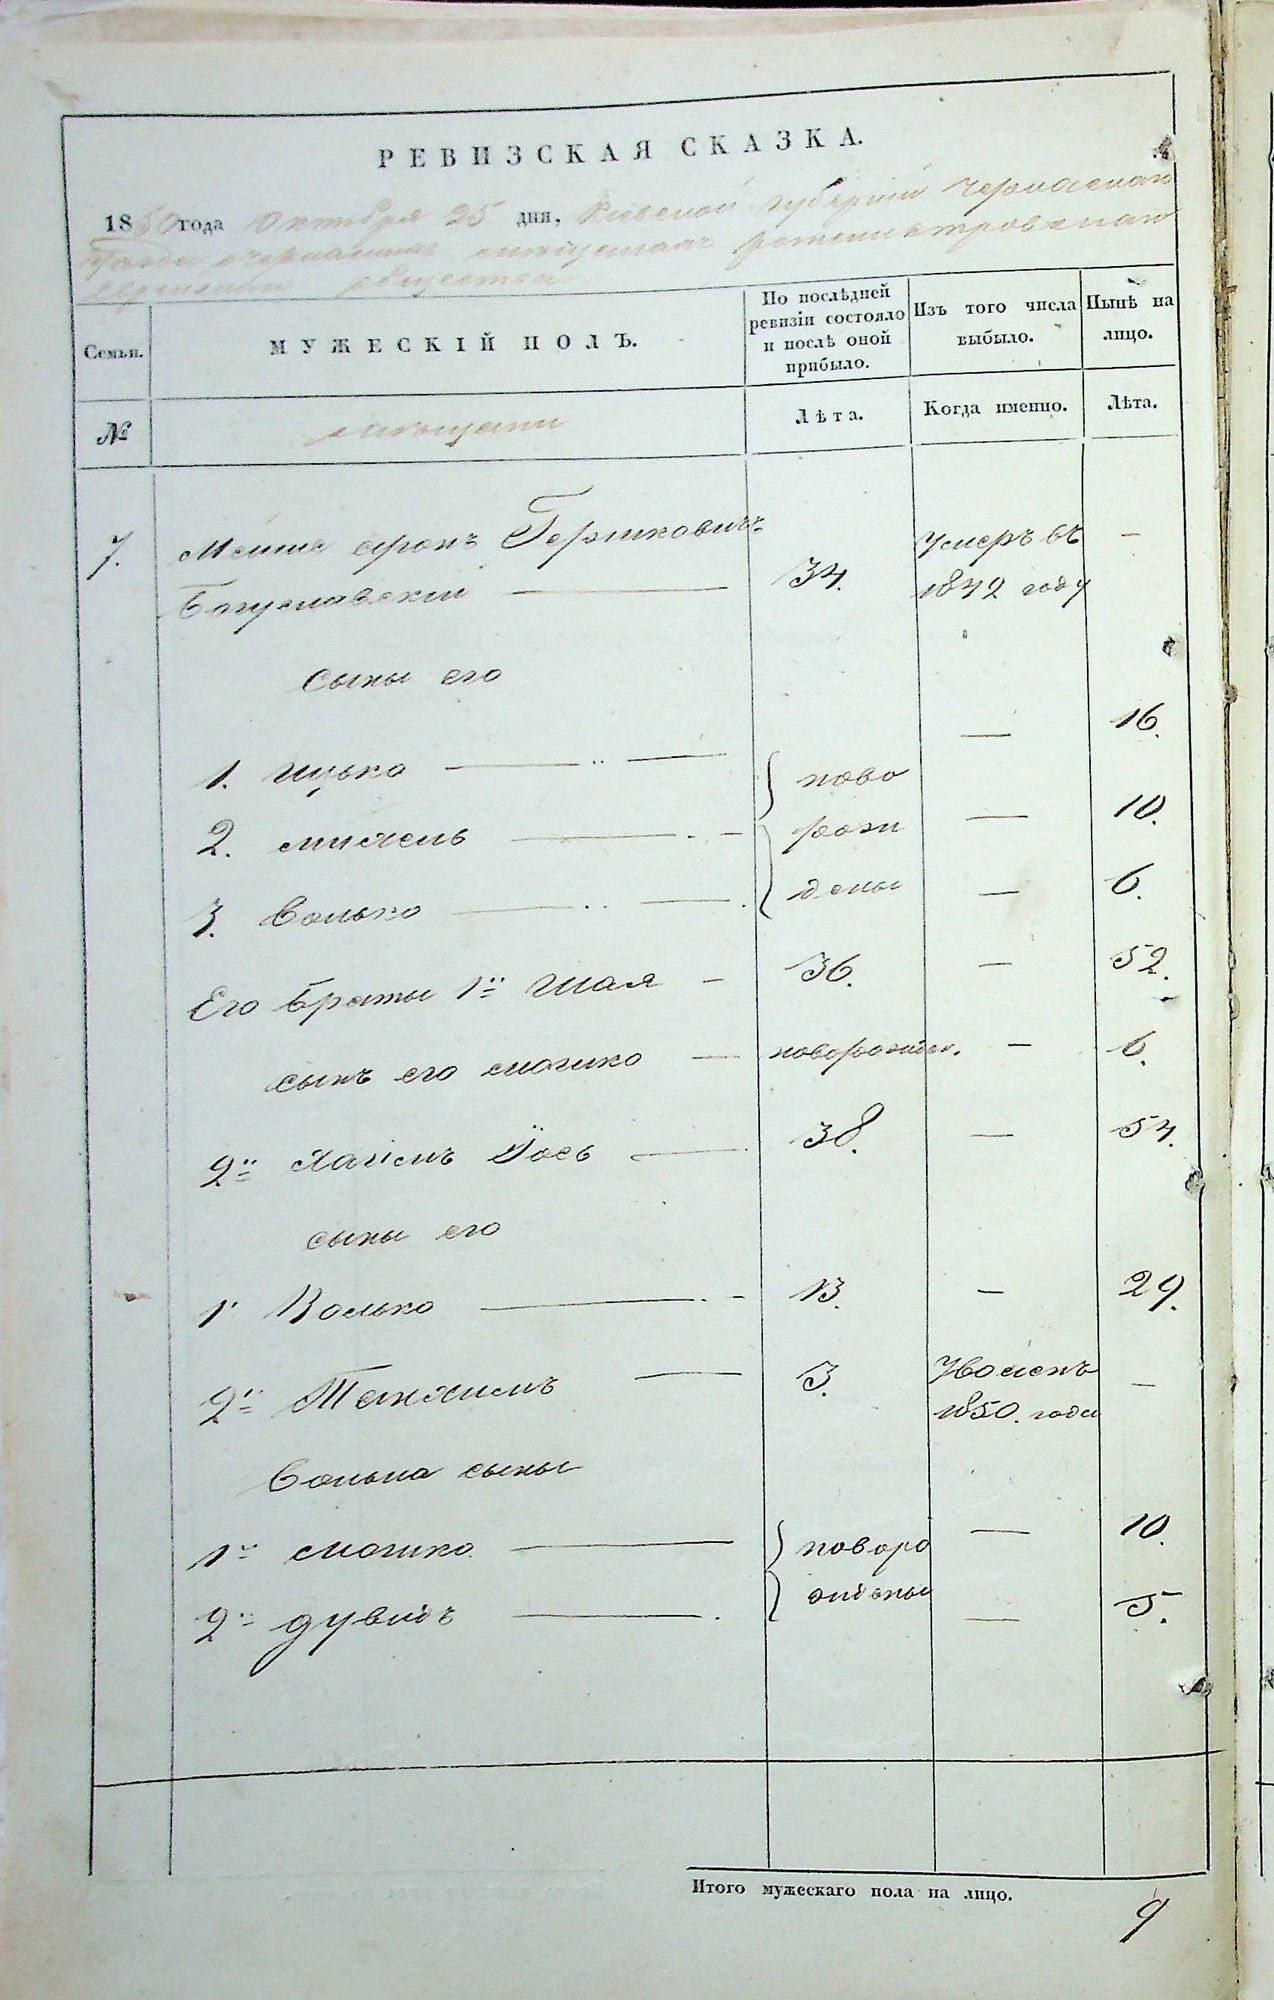 РЕВИЗСКАЯ СКАЗКА.
1850 года Октября 25 дня, Киевской губернии Черкаскаго
еврейскаго общества
Семьи.
МУЖЕСКІЙ ПОЛЪ.
По послѣдней
ревизіи состояло
и послѣ оной
прибыло.
Изъ того числа
выбыло.
Нынѣ на
лицо.
№
Лѣта.
Когда именно.
Лѣта.
7. Гершковичъ Умеръ въ —
Богуславскій — 34. 1842 году
Сыны его
1. Ицько — — 16.
2. — — 10.
3. Волько — — 6.
ново
рож
дены
Его браты 1й Шая — 36. — 52.
сынъ его Мошко — новорожден. — 6.
2й Хаимъ Іось — 38. — 54.
сыны его
1й Волько — 13. — 29.
2й Танхимъ — 3. —
1850. года
Волька сыны
1й Мошко — новоро — 10.
2й Дувидъ — ждены — 5.
Итого мужескаго пола на лицо.
9